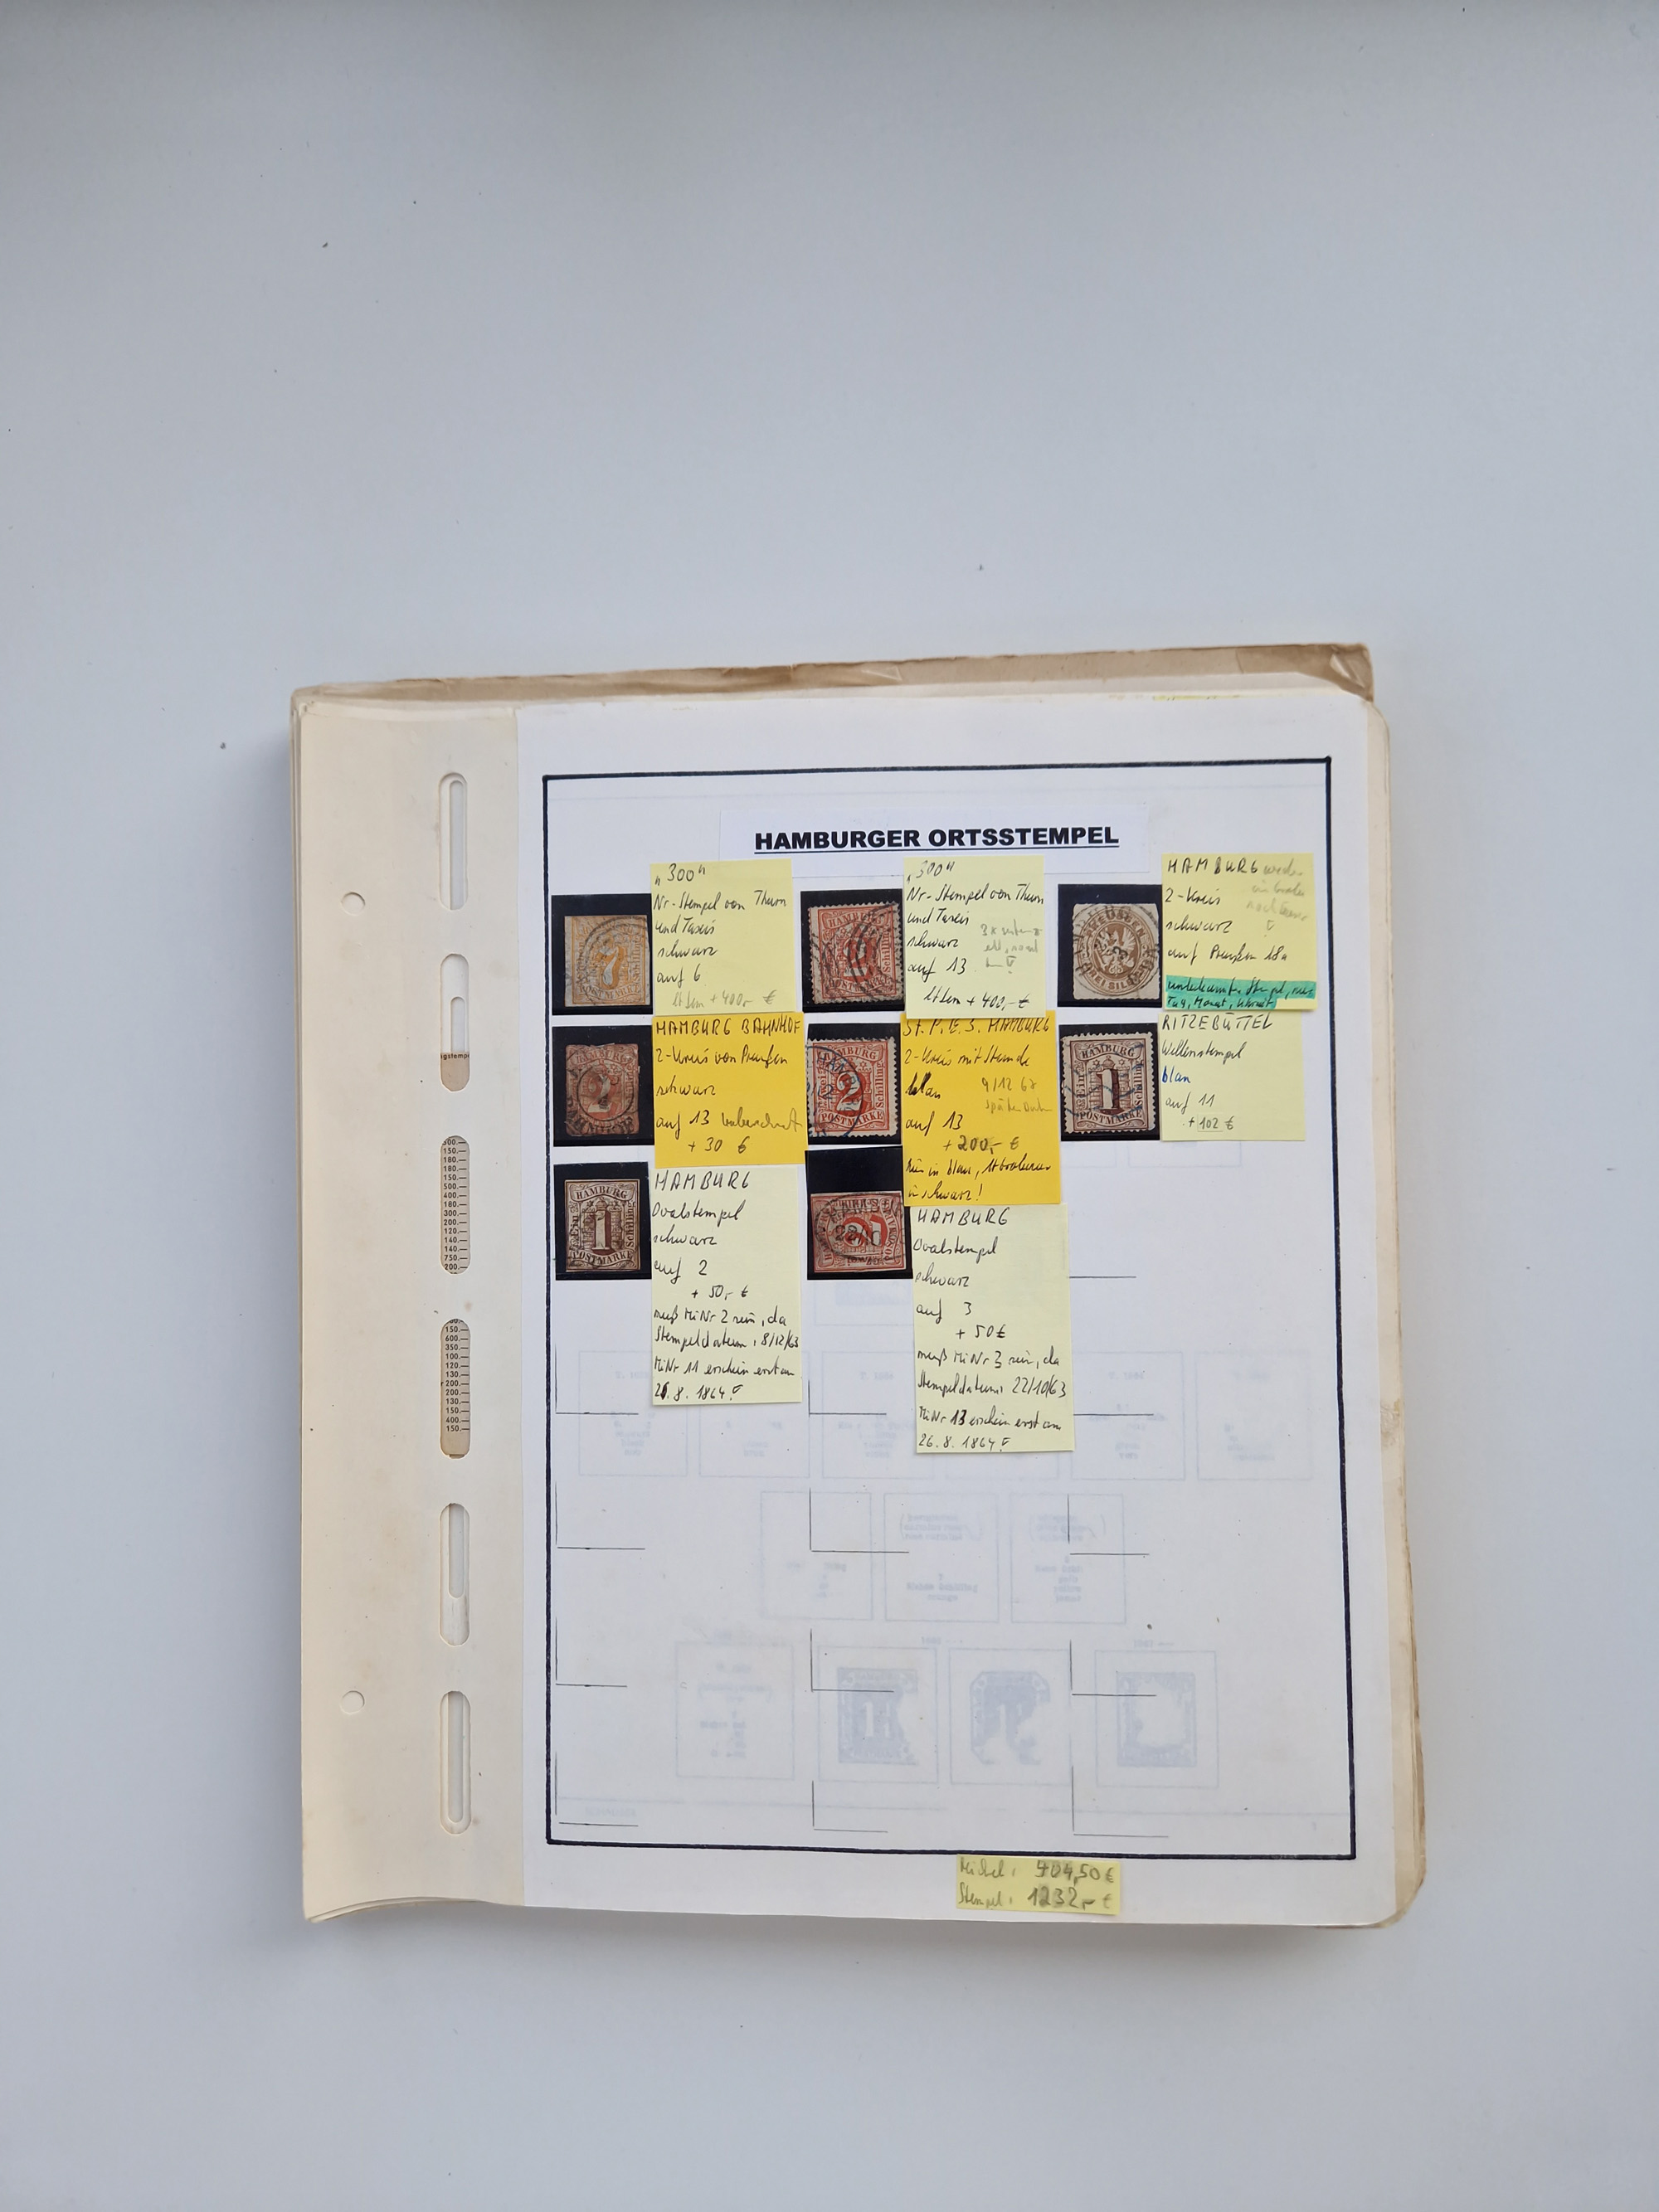 HAMBURGER ORTSSTEMPEL
„300“
Nr-Stempel von Thurn
und Taxis
schwarz
auf 6
+ 400,- €
„300“
Nr-Stempel von Thurn
und Taxis
schwarz
auf 13
+ 400,- €
HAMBURG
2-Kreis
schwarz
auf Preußen 18a
Tag, Monat,
HAMBURG BAHNHOF
2-Kreis von Preußen
schwarz
auf 13
+ 30 €
St. P. E. S. HAMBURG
2-Kreis mit Stunde
blau
9/12 67
auf 13
+ 200,- €
in schwarz!
RITZEBÜTTEL
Wellenstempel
blau
auf 11
+ 102 €
HAMBURG
Ovalstempel
schwarz
auf 2
+ 50,- €
muß MiNr 2 sein, da
Stempeldatum: 8/12/63
MiNr 11 erschien erst am
26.8.1864!
HAMBURG
Ovalstempel
schwarz
auf 3
+ 50 €
muß MiNr 3 sein, da
Stempeldatum: 22/10/63
MiNr 13 erschien erst am
26.8.1864!
HAMBURG
7
HAMBURG
PREUSSEN
DREI SILB
HAMBURG
2
Schilling
POSTMARKE
HAMBURG
Ein
1
Schilling
POSTMARKE
HAMBURG
Ein
1
Schilling
POSTMARKE
Michel: 704,50 €
Stempel: 1232,- €